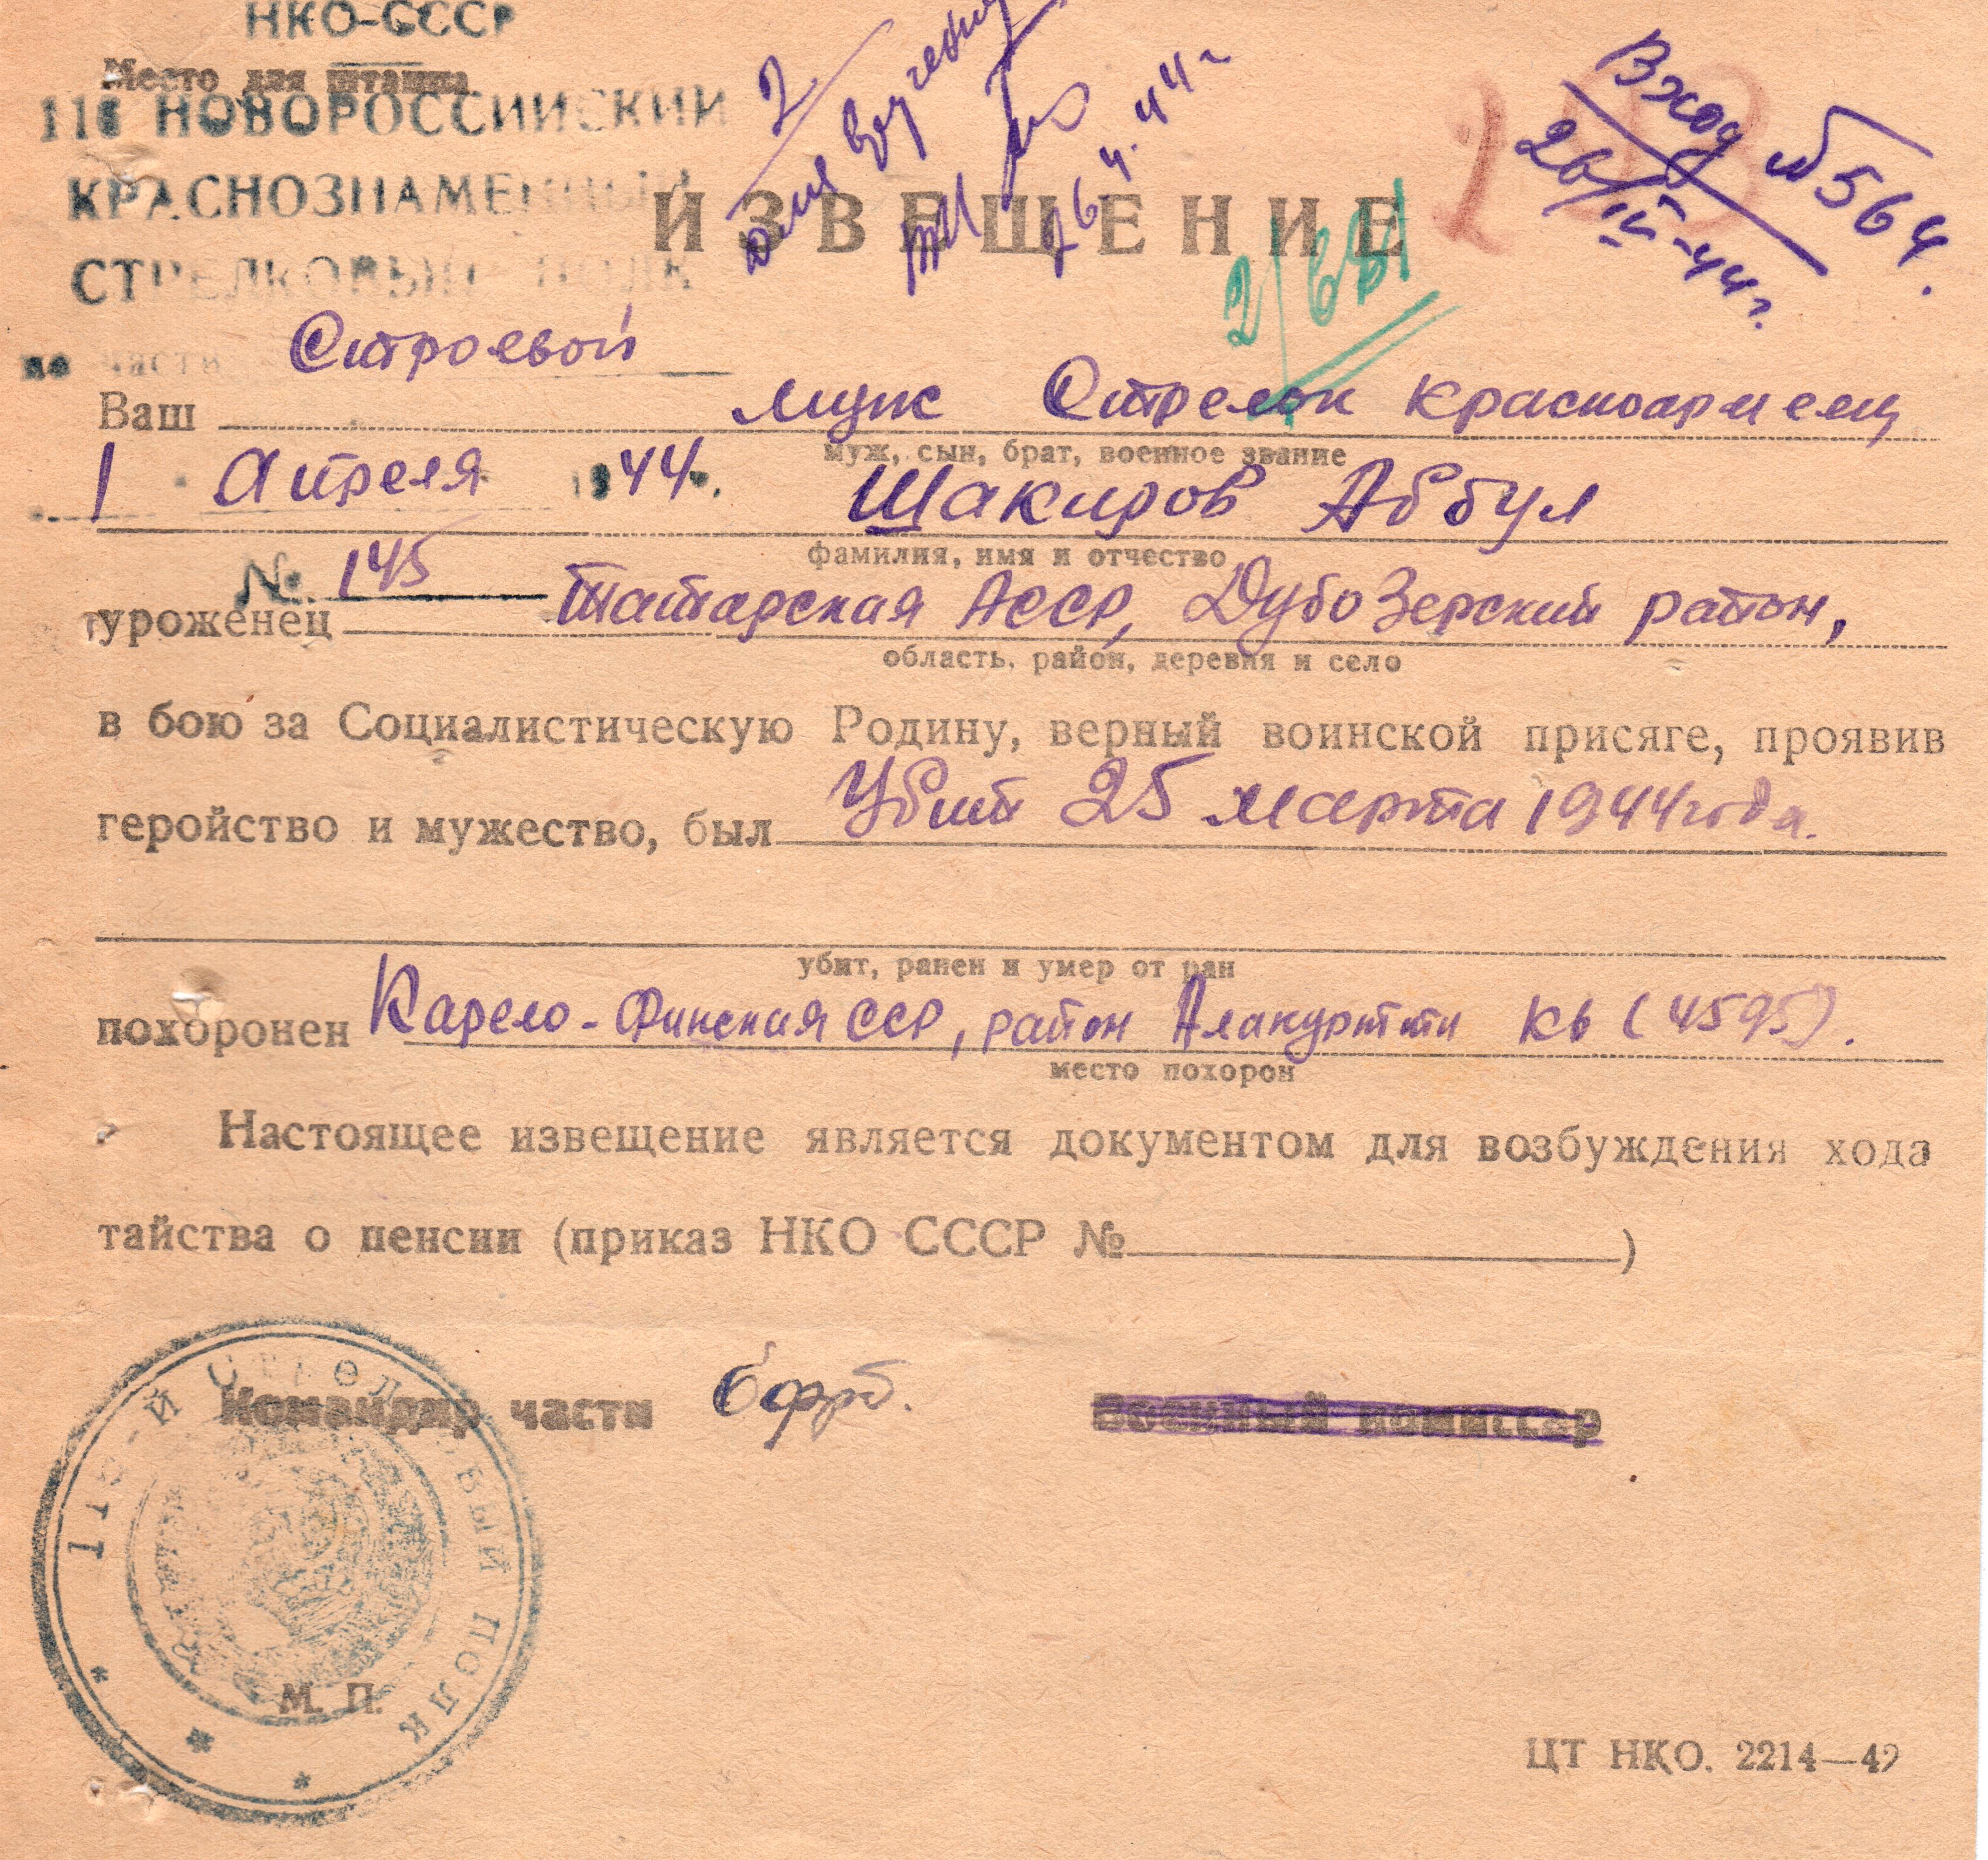 НКО-СССР
Место для штампа
116 НОВОРОССИЙСКИЙ
КРАСНОЗНАМЕННЫЙ
СТРЕЛКОВЫЙ ПОЛК
по части Строевой
1 Апреля 1944.
№ 145
2
26 4. 44 г
Вход № 564.
26/IV-44 г.
203
2/681
ИЗВЕЩЕНИЕ
Ваш муж Стрелок красноармеец
муж, сын, брат, военное звание
Шакиров Абдул
фамилия, имя и отчество
уроженец Татарская АССР, ДубоЗерский район,
область, район, деревня и село
в бою за Социалистическую Родину, верный воинской присяге, проявив
геройство и мужество, был Убит 25 марта 1944 года.
убит, ранен и умер от ран
похоронен Карело-Финская ССР, район Алакуртти Кв (4595).
место похорон
Настоящее извещение является документом для возбуждения хода
тайства о пенсии (приказ НКО СССР № )
Командир части
Военный комиссар
-Й СТРЕЛКОВЫЙ ПОЛК
М. П.
ЦТ НКО. 2214—42